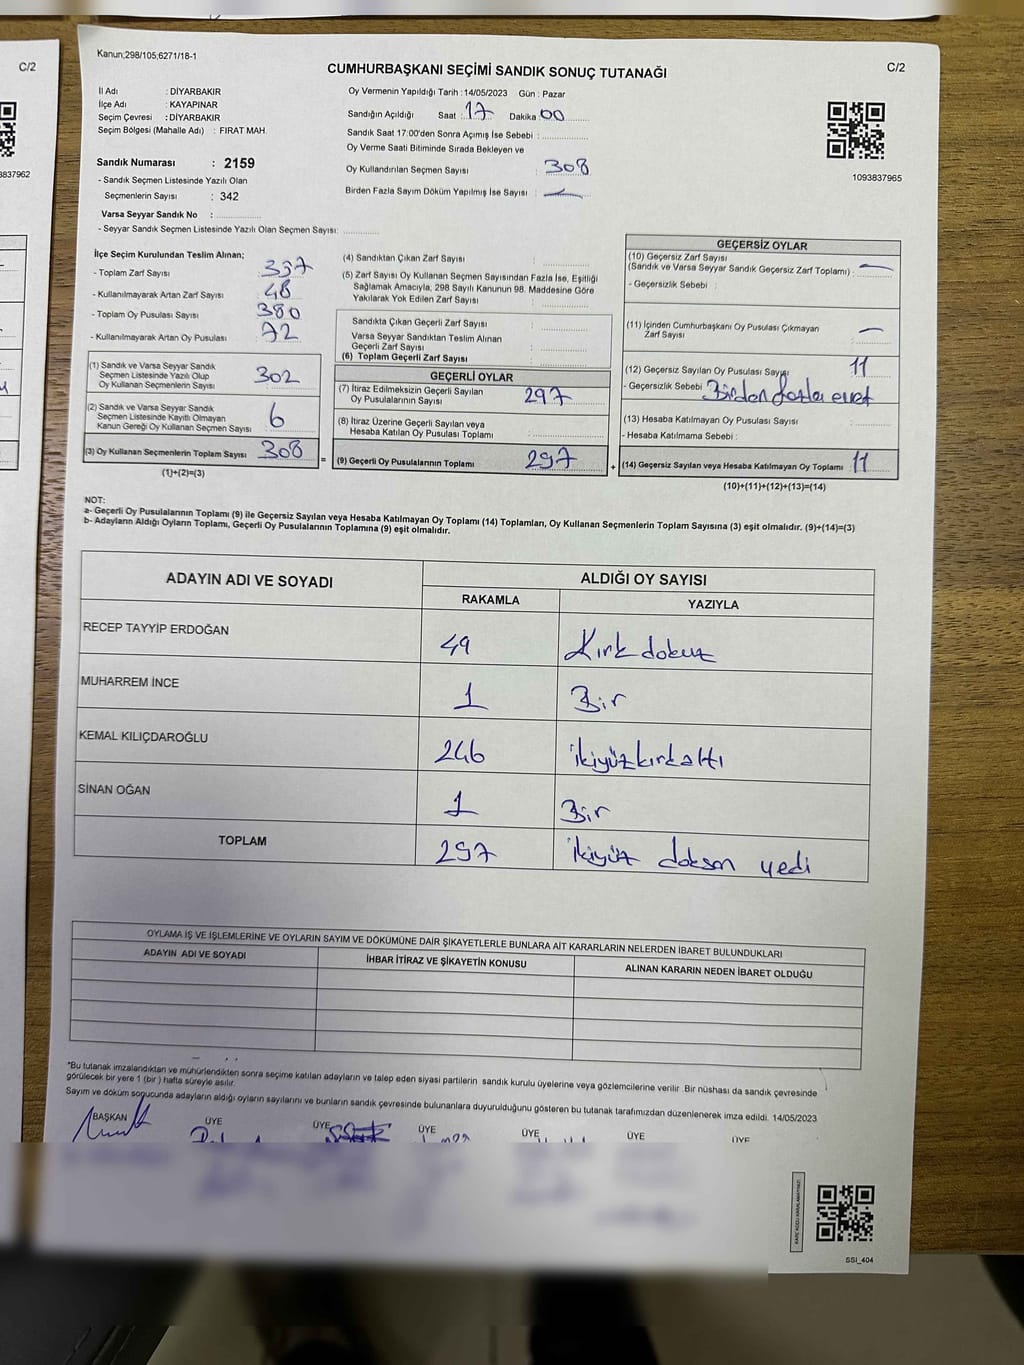 Kanun;298/105;6271/18-1
C/2
C/2
CUMHURBAŞKANI SEÇİMİ SANDIK SONUÇ TUTANAĞI
İl Adı : DİYARBAKIR
İlçe Adı : KAYAPINAR
Seçim Çevresi : DİYARBAKIR
Seçim Bölgesi (Mahalle Adı) : FIRAT MAH.
Oy Vermenin Yapıldığı Tarih :14/05/2023 Gün : Pazar
Sandığın Açıldığı Saat : 17 Dakika : 00
Sandık Saat 17:00'den Sonra Açımış İse Sebebi :
Oy Verme Saati Bitiminde Sırada Bekleyen ve
Oy Kullandırılan Seçmen Sayısı : 308
Birden Fazla Sayım Döküm Yapılmış İse Sayısı : —
1093837965
837962
Sandık Numarası : 2159
- Sandık Seçmen Listesinde Yazılı Olan
Seçmenlerin Sayısı : 342
Varsa Seyyar Sandık No :
- Seyyar Sandık Seçmen Listesinde Yazılı Olan Seçmen Sayısı:
İlçe Seçim Kurulundan Teslim Alınan;
- Toplam Zarf Sayısı
- Kullanılmayarak Artan Zarf Sayısı 48
- Toplam Oy Pusulası Sayısı 380
- Kullanılmayarak Artan Oy Pusulası 72
(1) Sandık ve Varsa Seyyar Sandık
Seçmen Listesinde Yazılı Olup
Oy Kullanan Seçmenlerin Sayısı 302
(2) Sandık ve Varsa Seyyar Sandık
Seçmen Listesinde Kayıtlı Olmayan
Kanun Gereği Oy Kullanan Seçmen Sayısı 6
(3) Oy Kullanan Seçmenlerin Toplam Sayısı 308
(1)+(2)=(3)
=
(4) Sandıktan Çıkan Zarf Sayısı :
(5) Zarf Sayısı Oy Kullanan Seçmen Sayısından Fazla İse, Eşitliği
Sağlamak Amacıyla, 298 Sayılı Kanunun 98. Maddesine Göre
Yakılarak Yok Edilen Zarf Sayısı :
Sandıkta Çıkan Geçerli Zarf Sayısı :
Varsa Seyyar Sandıktan Teslim Alınan
Geçerli Zarf Sayısı :
(6) Toplam Geçerli Zarf Sayısı :
GEÇERLİ OYLAR
(7) İtiraz Edilmeksizin Geçerli Sayılan
Oy Pusulalarının Sayısı : 297
(8) İtiraz Üzerine Geçerli Sayılan veya
Hesaba Katılan Oy Pusulası Toplamı :
(9) Geçerli Oy Pusulalarının Toplamı 297
+
GEÇERSİZ OYLAR
(10) Geçersiz Zarf Sayısı
(Sandık ve Varsa Seyyar Sandık Geçersiz Zarf Toplamı) : —
- Geçersizlik Sebebi :
(11) İçinden Cumhurbaşkanı Oy Pusulası Çıkmayan
Zarf Sayısı : —
(12) Geçersiz Sayılan Oy Pusulası Sayısı 11
- Geçersizlik Sebebi : Birden fazla evet
(13) Hesaba Katılmayan Oy Pusulası Sayısı :
- Hesaba Katılmama Sebebi :
(14) Geçersiz Sayılan veya Hesaba Katılmayan Oy Toplamı 11
(10)+(11)+(12)+(13)=(14)
NOT:
a- Geçerli Oy Pusulalarının Toplamı (9) ile Geçersiz Sayılan veya Hesaba Katılmayan Oy Toplamı (14) Toplamları, Oy Kullanan Seçmenlerin Toplam Sayısına (3) eşit olmalıdır. (9)+(14)=(3)
b- Adayların Aldığı Oyların Toplamı, Geçerli Oy Pusulalarının Toplamına (9) eşit olmalıdır.
ADAYIN ADI VE SOYADI
ALDIĞI OY SAYISI
RAKAMLA YAZIYLA
RECEP TAYYİP ERDOĞAN 49 Kırk dokuz
MUHARREM İNCE 1 Bir
KEMAL KILIÇDAROĞLU 246 ikiyüz kırk altı
SİNAN OĞAN 1 Bir
TOPLAM 297 ikiyüz doksan yedi
OYLAMA İŞ VE İŞLEMLERİNE VE OYLARIN SAYIM VE DÖKÜMÜNE DAİR ŞİKAYETLERLE BUNLARA AİT KARARLARIN NELERDEN İBARET BULUNDUKLARI
ADAYIN ADI VE SOYADI İHBAR İTİRAZ VE ŞİKAYETİN KONUSU ALINAN KARARIN NEDEN İBARET OLDUĞU
*Bu tutanak imzalandıktan ve mühürlendikten sonra seçime katılan adayların ve talep eden siyasi partilerin sandık kurulu üyelerine veya gözlemcilerine verilir .Bir nüshası da sandık çevresinde
görülecek bir yere 1 (bir ) hafta süreyle asılır.
Sayım ve döküm sonucunda adayların aldığı oyların sayılarını ve bunların sandık çevresinde bulunanlara duyurulduğunu gösteren bu tutanak tarafımızdan düzenlenerek imza edildi. 14/05/2023
BAŞKAN ÜYE ÜYE ÜYE ÜYE ÜYE ÜYE
SSI_404